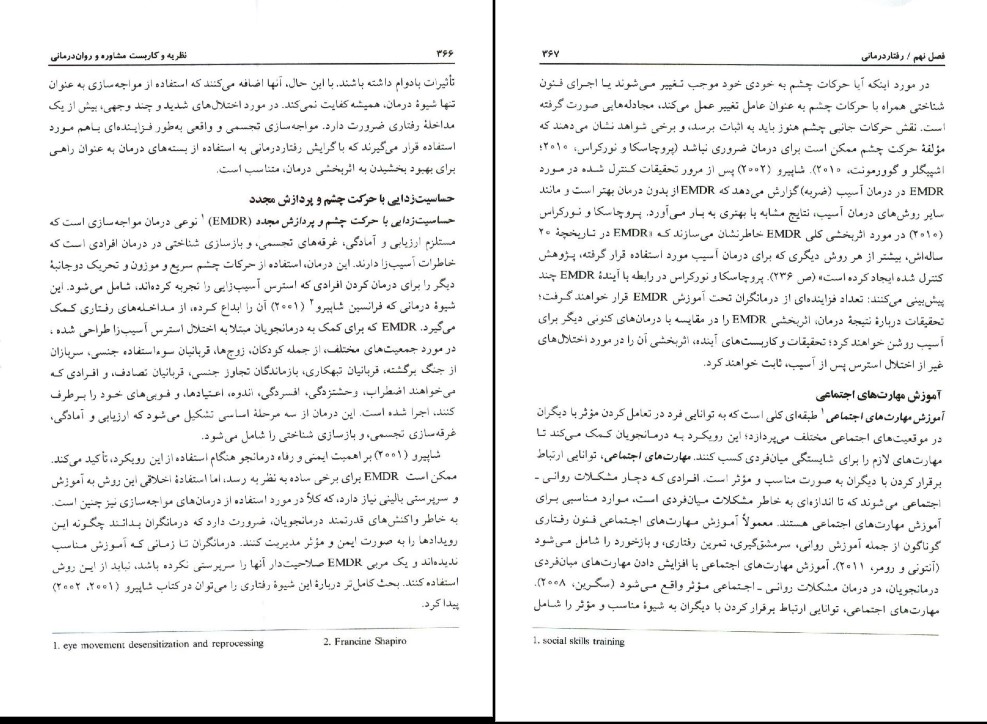 ۳۶۶ نظریه و کاربست مشاوره و روان‌درمانی
تأثیرات بادوام داشته باشند. با این حال، آنها اضافه می‌کنند که استفاده از مواجه‌سازی به عنوان
تنها شیوهٔ درمان، همیشه کفایت نمی‌کند. در مورد اختلال‌های شدید و چند وجهی، بیش از یک
مداخلهٔ رفتاری ضرورت دارد. مواجه‌سازی تجسمی و واقعی به‌طور فزاینده‌ای باهم مورد
استفاده قرار می‌گیرند که با گرایش رفتاردرمانی به استفاده از بسته‌های درمان به عنوان راهی
برای بهبود بخشیدن به اثربخشی درمان، متناسب است.
حساسیت‌زدایی با حرکت چشم و پردازش مجدد
حساسیت‌زدایی با حرکت چشم و پردازش مجدد (EMDR)۱ نوعی درمان مواجه‌سازی است که
مستلزم ارزیابی و آمادگی، غرقه‌های تجسمی، و بازسازی شناختی در درمان افرادی است که
خاطرات آسیب‌زا دارند. این درمان، استفاده از حرکات چشم سریع و موزون و تحریک دوجانبهٔ
دیگر را برای درمان کردن افرادی که استرس آسیب‌زایی را تجربه کرده‌اند، شامل می‌شود. این
شیوهٔ درمانی که فرانسین شاپیرو۲ (۲۰۰۱) آن را ابداع کرده، از مداخله‌های رفتاری کمک
می‌گیرد. EMDR که برای کمک به درمانجویان مبتلا به اختلال استرس آسیب‌زا طراحی شده،
در مورد جمعیت‌های مختلف، از جمله کودکان، زوج‌ها، قربانیان سوءاستفاده جنسی، سربازان
از جنگ برگشته، قربانیان تبهکاری، بازماندگان تجاوز جنسی، قربانیان تصادف، و افرادی که
می‌خواهند اضطراب، وحشتزدگی، افسردگی، اندوه، اعتیادها، و فوبی‌های خود را برطرف
کنند، اجرا شده است. این درمان از سه مرحلهٔ اساسی تشکیل می‌شود که ارزیابی و آمادگی،
غرقه‌سازی تجسمی، و بازسازی شناختی را شامل می‌شود.
شاپیرو (۲۰۰۱) بر اهمیت ایمنی و رفاه درمانجو هنگام استفاده از این رویکرد، تأکید می‌کند.
ممکن است EMDR برای برخی ساده به نظر برسد، اما استفادهٔ اخلاقی این روش به آموزش
و سرپرستی بالینی نیاز دارد، که کلاً در مورد استفاده از درمان‌های مواجه‌سازی نیز چنین است.
به خاطر واکنش‌های قدرتمند درمانجویان، ضرورت دارد که درمانگران بدانند چگونه این
رویدادها را به صورت ایمن و مؤثر مدیریت کنند. درمانگران تا زمانی که آموزش مناسب
ندیده‌اند و یک مربی EMDR صلاحیت‌دار آنها را سرپرستی نکرده باشد، نباید از این روش
استفاده کنند. بحث کامل‌تر دربارهٔ این شیوهٔ رفتاری را می‌توان در کتاب شاپیرو (۲۰۰۱، ۲۰۰۲)
پیدا کرد.
1. eye movement desensitization and reprocessing 2. Francine Shapiro
فصل نهم / رفتاردرمانی ۳۶۷
در مورد اینکه آیا حرکات چشم به خودی خود موجب تغییر می‌شوند یا اجرای فنون
شناختی همراه با حرکات چشم به عنوان عامل تغییر عمل می‌کند، مجادله‌هایی صورت گرفته
است. نقش حرکات جانبی چشم هنوز باید به اثبات برسد، و برخی شواهد نشان می‌دهند که
مؤلفهٔ حرکت چشم ممکن است برای درمان ضروری نباشد (پروچاسکا و نورکراس، ۲۰۱۰؛
اشپیگلر و گوورمونت، ۲۰۱۰). شاپیرو (۲۰۰۲) پس از مرور تحقیقات کنترل شده در مورد
EMDR در درمان آسیب (ضربه) گزارش می‌دهد که EMDR از بدون درمان بهتر است و مانند
سایر روش‌های درمان آسیب، نتایج مشابه یا بهتری به بار می‌آورد. پروچاسکا و نورکراس
(۲۰۱۰) در مورد اثربخشی کلی EMDR خاطرنشان می‌سازند که «EMDR در تاریخچهٔ ۲۰
ساله‌اش، بیشتر از هر روش دیگری که برای درمان آسیب مورد استفاده قرار گرفته، پژوهش
کنترل شده ایجاد کرده است» (ص ۲۳۶). پروچاسکا و نورکراس در رابطه با آیندهٔ EMDR چند
پیش‌بینی می‌کنند: تعداد فزاینده‌ای از درمانگران تحت آموزش EMDR قرار خواهند گرفت؛
تحقیقات دربارهٔ نتیجهٔ درمان، اثربخشی EMDR را در مقایسه با درمان‌های کنونی دیگر برای
آسیب روشن خواهند کرد؛ تحقیقات و کاربست‌های آینده، اثربخشی آن را در مورد اختلال‌های
غیر از اختلال استرس پس از آسیب، ثابت خواهند کرد.
آموزش مهارت‌های اجتماعی
آموزش مهارت‌های اجتماعی۱ طبقه‌ای کلی است که به توانایی فرد در تعامل کردن مؤثر با دیگران
در موقعیت‌های اجتماعی مختلف می‌پردازد؛ این رویکرد به درمانجویان کمک می‌کند تا
مهارت‌های لازم را برای شایستگی میان‌فردی کسب کنند. مهارت‌های اجتماعی، توانایی ارتباط
برقرار کردن با دیگران به صورت مناسب و مؤثر است. افرادی که دچار مشکلات روانی ـ
اجتماعی می‌شوند که تا اندازه‌ای به خاطر مشکلات میان‌فردی است، موارد مناسبی برای
آموزش مهارت‌های اجتماعی هستند. معمولاً آموزش مهارت‌های اجتماعی فنون رفتاری
گوناگون از جمله آموزش روانی، سرمشق‌گیری، تمرین رفتاری، و بازخورد را شامل می‌شود
(آنتونی و رومر، ۲۰۱۱). آموزش مهارت‌های اجتماعی با افزایش دادن مهارت‌های میان‌فردی
درمانجویان، در درمان مشکلات روانی ـ اجتماعی مؤثر واقع می‌شود (سگرین، ۲۰۰۸).
مهارت‌های اجتماعی، توانایی ارتباط برقرار کردن با دیگران به شیوهٔ مناسب و مؤثر را شامل
1. social skills training